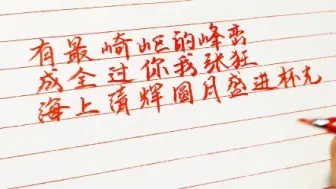 有最崎岖的峰峦
成全过你我张狂
海上清辉圆月盛进杯光